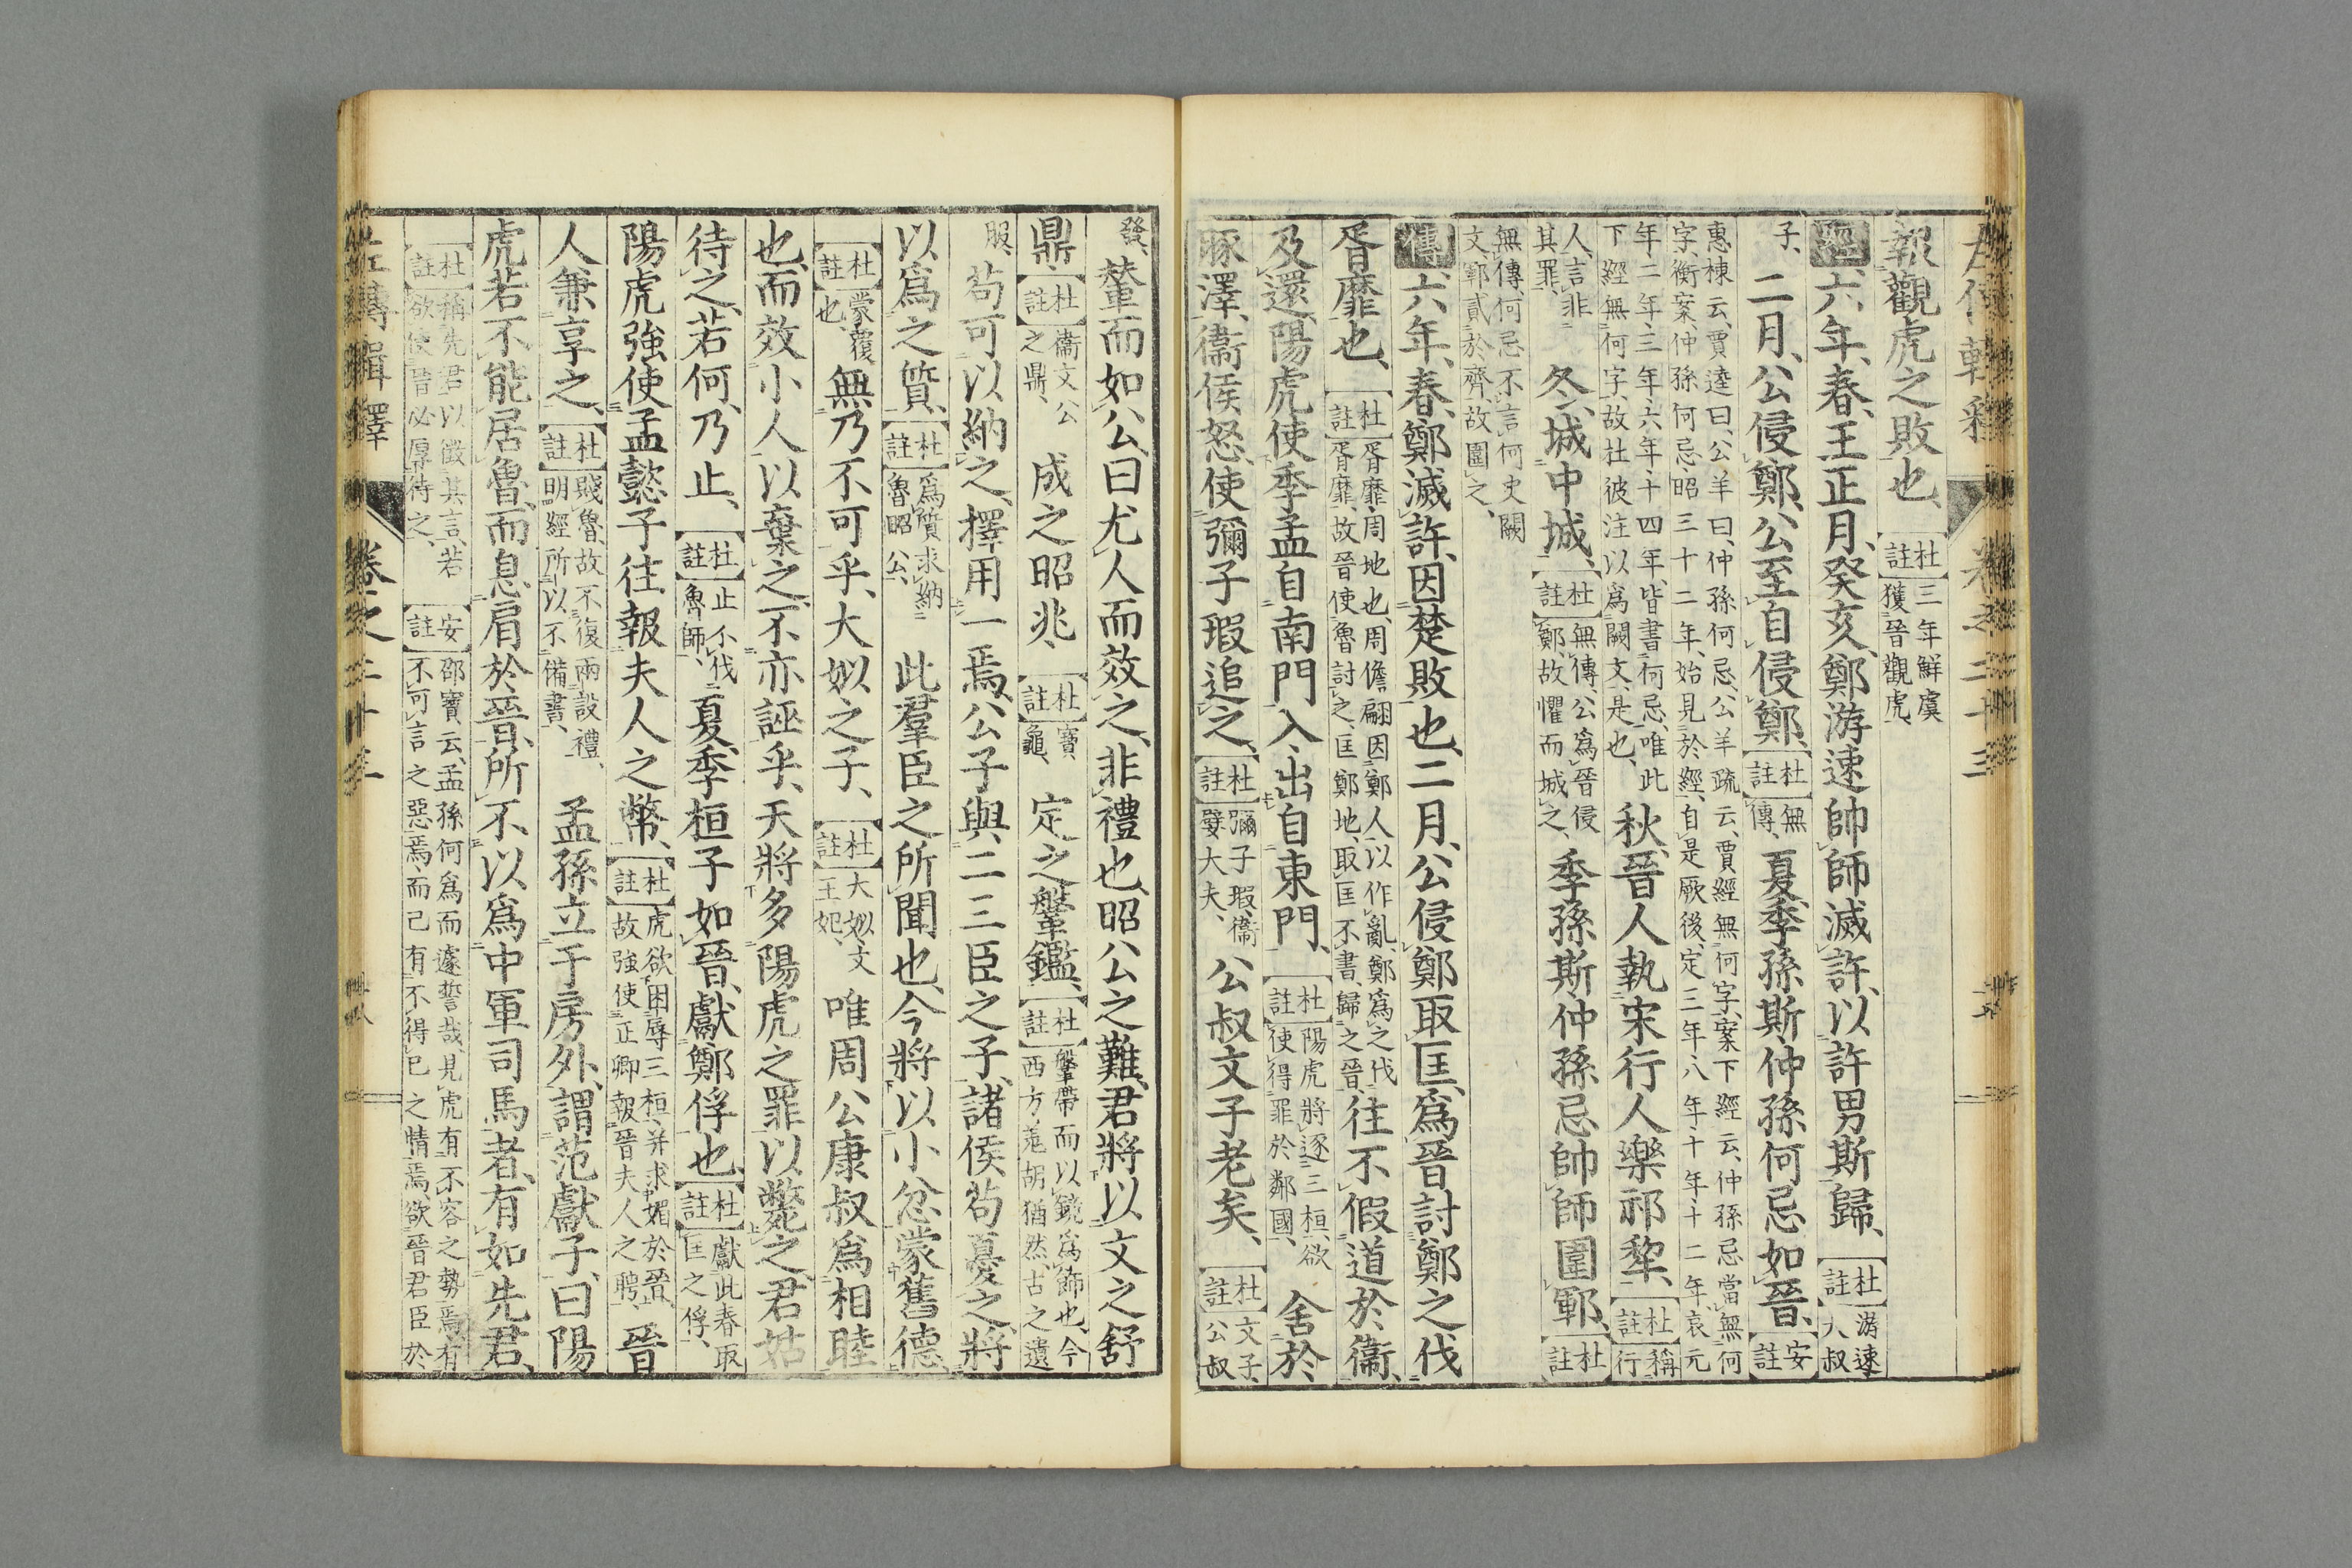 報觀虎之敗也、杜註三年鮮虞獲晉觀虎、
經六年、春、王正月、癸亥、鄭游速帥師滅許、以許男斯歸、杜註游速大叔
子、二月、公侵鄭、公至自侵鄭、杜註無傳、夏、季孫斯、仲孫何忌如晉、安註
惠棟云、賈逵曰、公羊曰、仲孫何忌、公羊疏云、賈經無何字、案下經云、仲孫忌當無何
字、衡案、仲孫何忌昭三十二年、始見於經、自是厥後、定三年八年十年十二年、哀元
年二年、三年、六年十四年、皆書何忌、唯此
下經無何字、故杜彼注以爲闕文、是也、秋、晉人執宋行人樂祁犂、杜註稱行
人、言非其罪、冬、城中城、杜註無傳、公爲晉侵鄭、故懼而城之、季孫斯、仲孫忌帥師圍鄆、杜註
無傳、何忌不言何史闕
文、鄆貳於齊、故圍之、
傳六年、春、鄭滅許、因楚敗也、二月、公侵鄭取匡、爲晉討鄭之伐
胥靡也、杜註胥靡、周地也、周儋翩因鄭人以作亂、鄭爲之伐胥靡、故晉使魯討之、匡鄭地、取匡不書、歸之晉、往不假道於衞、
及還、陽虎使季孟自南門入、出自東門、杜註陽虎將逐三桓、欲使得罪於鄰國、舍於
豚澤、衞侯怒、使彌子瑕追之、杜註彌子瑕、衞嬖大夫、公叔文子老矣、杜註文子、公叔
發、輦而如公曰、尤人而效之、非禮也、昭公之難、君將以文之舒
鼎、杜註衞文公之鼎、成之昭兆、杜註寶龜、定之鞶鑑、杜註鞶帶而以鏡爲飾也、今西方羗胡猶然、古之遺
服、苟可以納之、擇用一焉、公子與二三臣之子、諸侯苟憂之、將
以爲之質、杜註爲質求納魯昭公、此羣臣之所聞也、今將以小忿蒙舊德、
杜註蒙、覆也、無乃不可乎、大姒之子、杜註大姒、文王妃、唯周公康叔爲相睦
也、而效小人以棄之、不亦誣乎、天將多陽虎之罪以斃之、君姑
待之、若何、乃止、杜註止不伐魯師、夏、季桓子如晉、獻鄭俘也、杜註獻此春取匡之俘、
陽虎強使孟懿子往報夫人之幣、杜註虎欲困辱三桓、并求媚於晉、故強使正卿報晉夫人之聘、晉
人兼享之、杜註賤魯、故不復兩設禮、明經所以不備書、孟孫立于房外、謂范獻子、曰、陽
虎若不能居魯、而息肩於晉、所不以爲中軍司馬者、有如先君、
杜註稱先君以徵其言、若欲使晉必厚待之、安註邵寶云、孟孫何爲而遽誓哉、見虎有不容之勢焉、有不可言之惡焉、而己有不得已之情焉、欲晉君臣於
左傳輯釋 卷之二十三